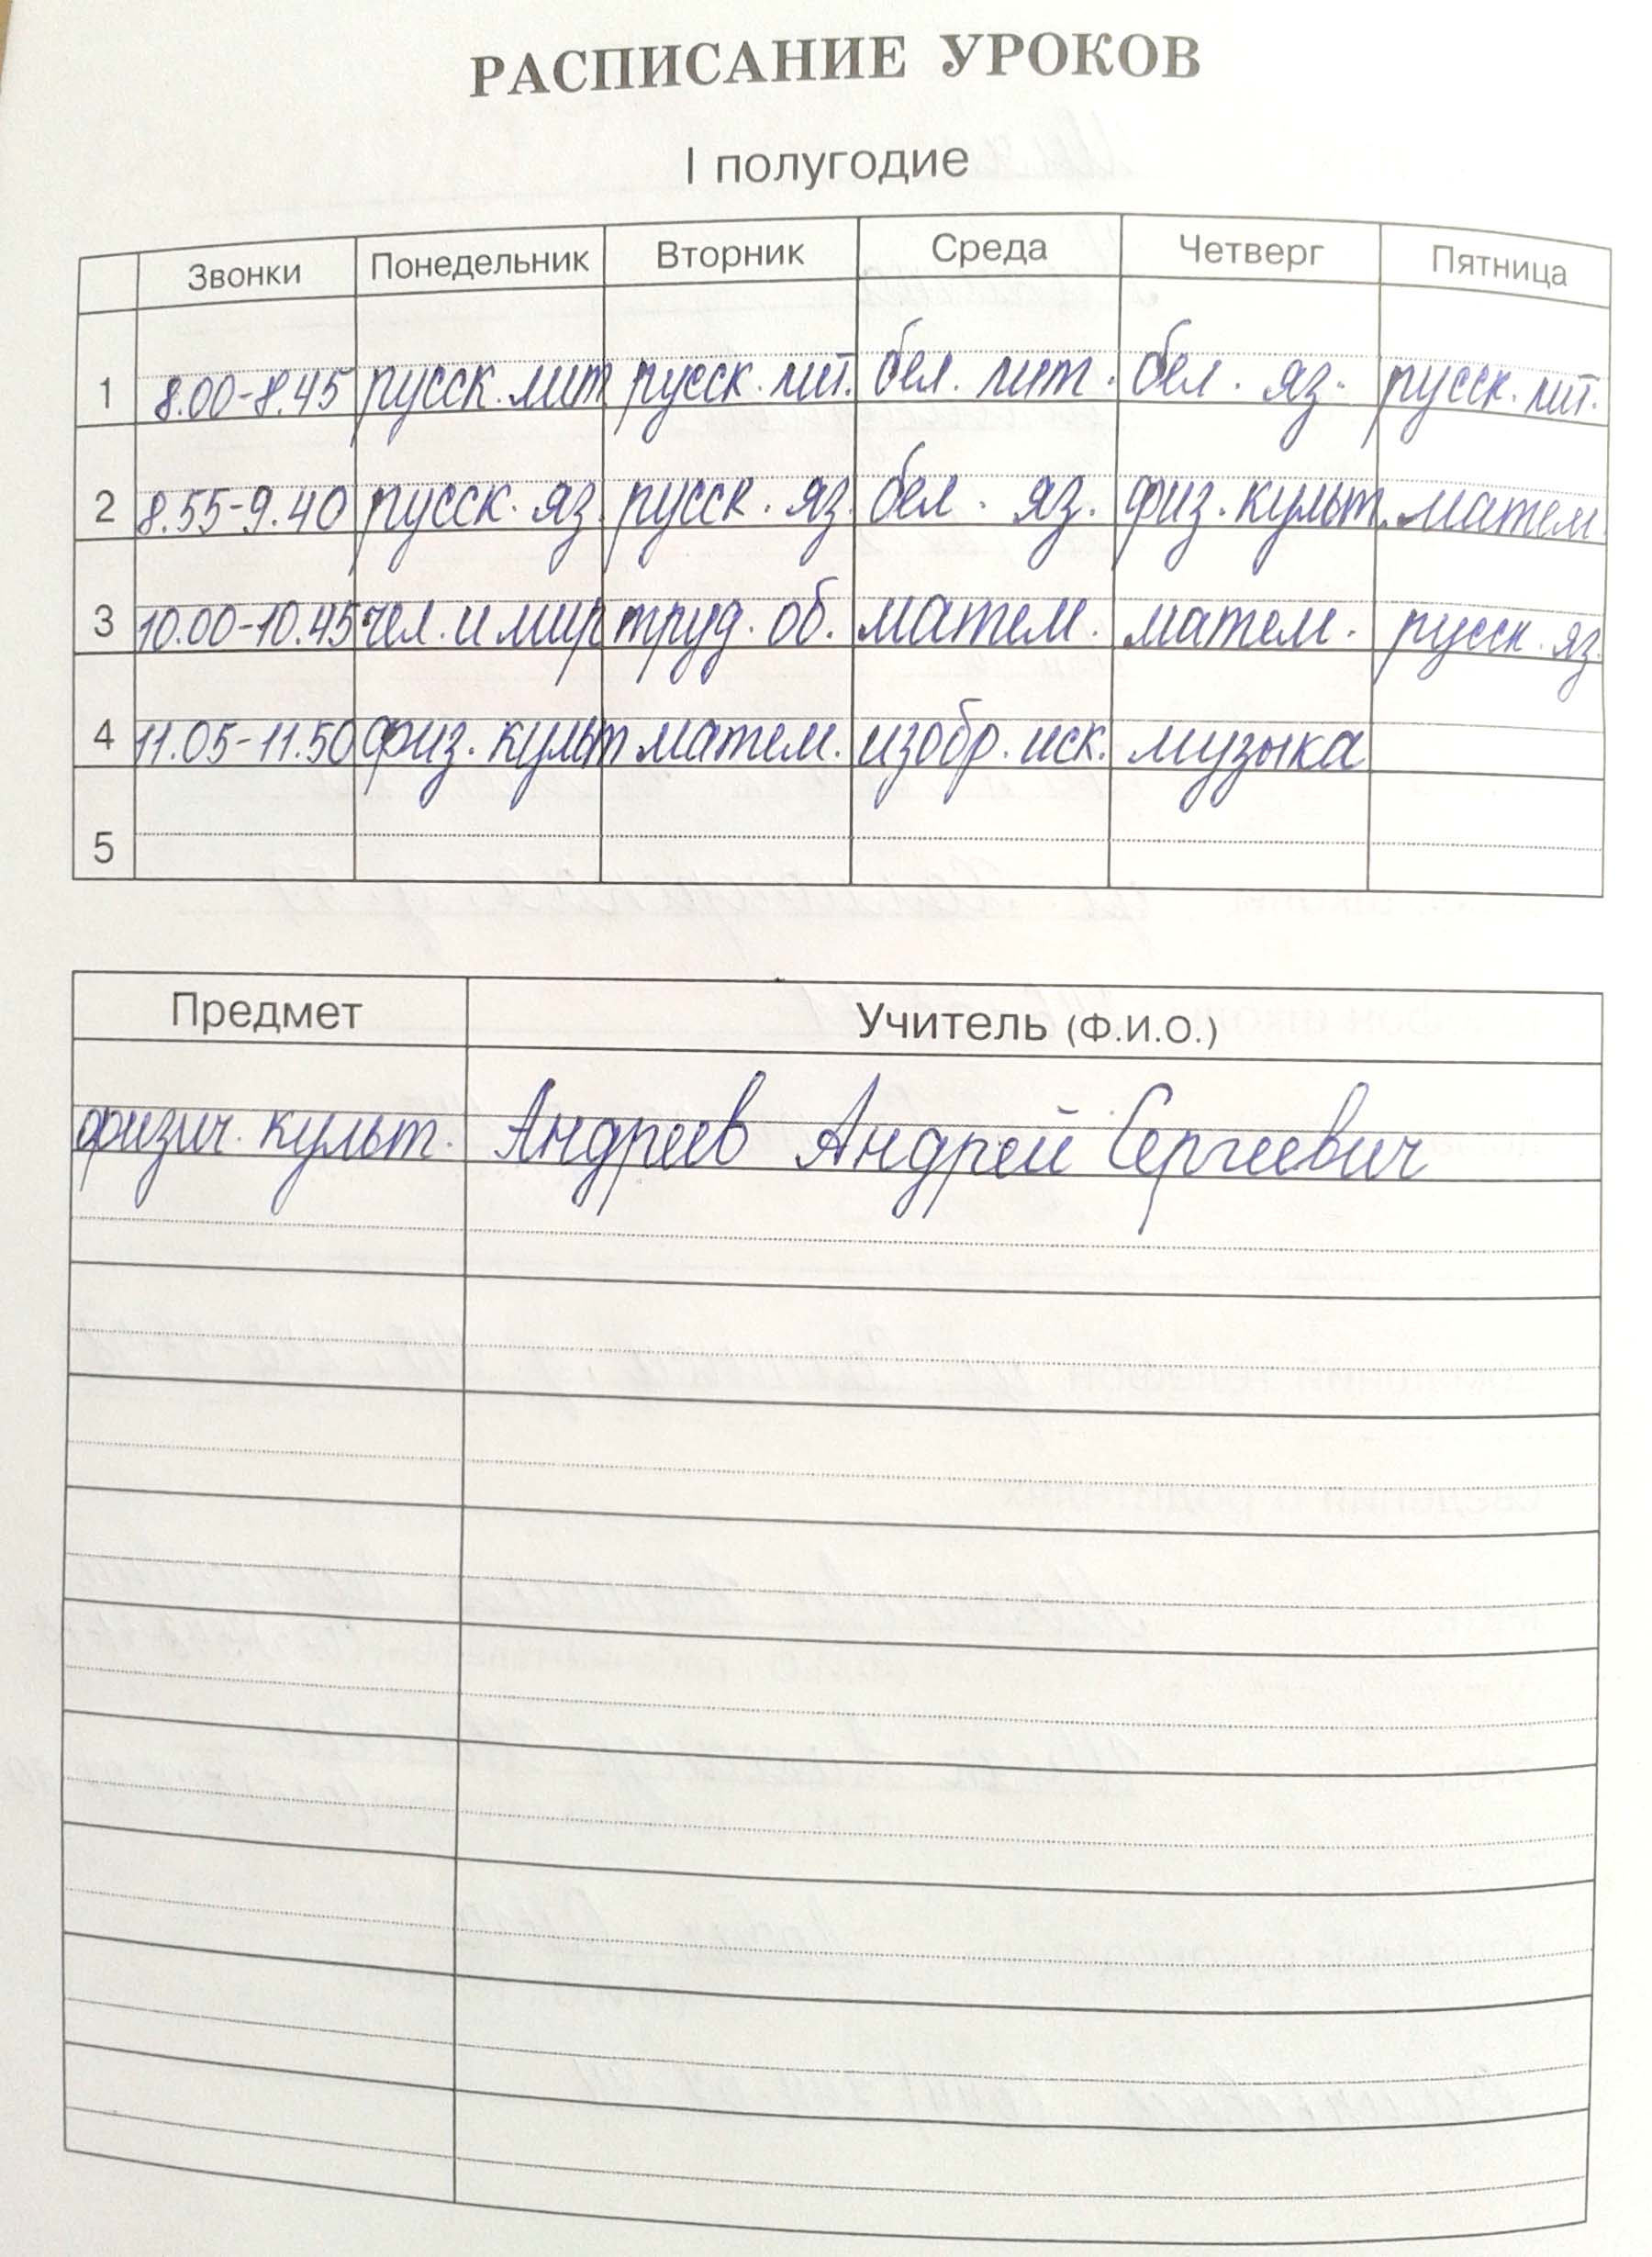 РАСПИСАНИЕ УРОКОВ
I полугодие
Звонки Понедельник Вторник Среда Четверг Пятница
1 8.00-8.45 русск. лит русск. лит. бел. лит. бел. яз. русск. лит.
2 8.55-9.40 русск. яз. русск. яз. бел. яз. физ. культ. матем.
3 10.00-10.45 чел. и мир труд. об. матем. матем. русск. яз.
4 11.05-11.50 физ. культ матем. изобр. иск. музыка
5
Предмет Учитель (Ф.И.О.)
физич. культ. Андреев Андрей Сергеевич